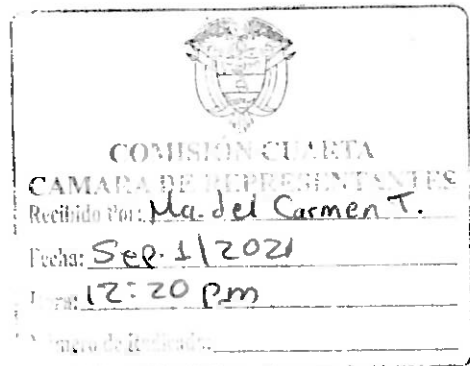 COMISIÓN CUARTA
CAMARA DE REPRESENTANTES
Recibido Por: Ma. del Carmen T.
Fecha: Sep. 1/2021
Hora: 12:20 pm
Número de Radicado: